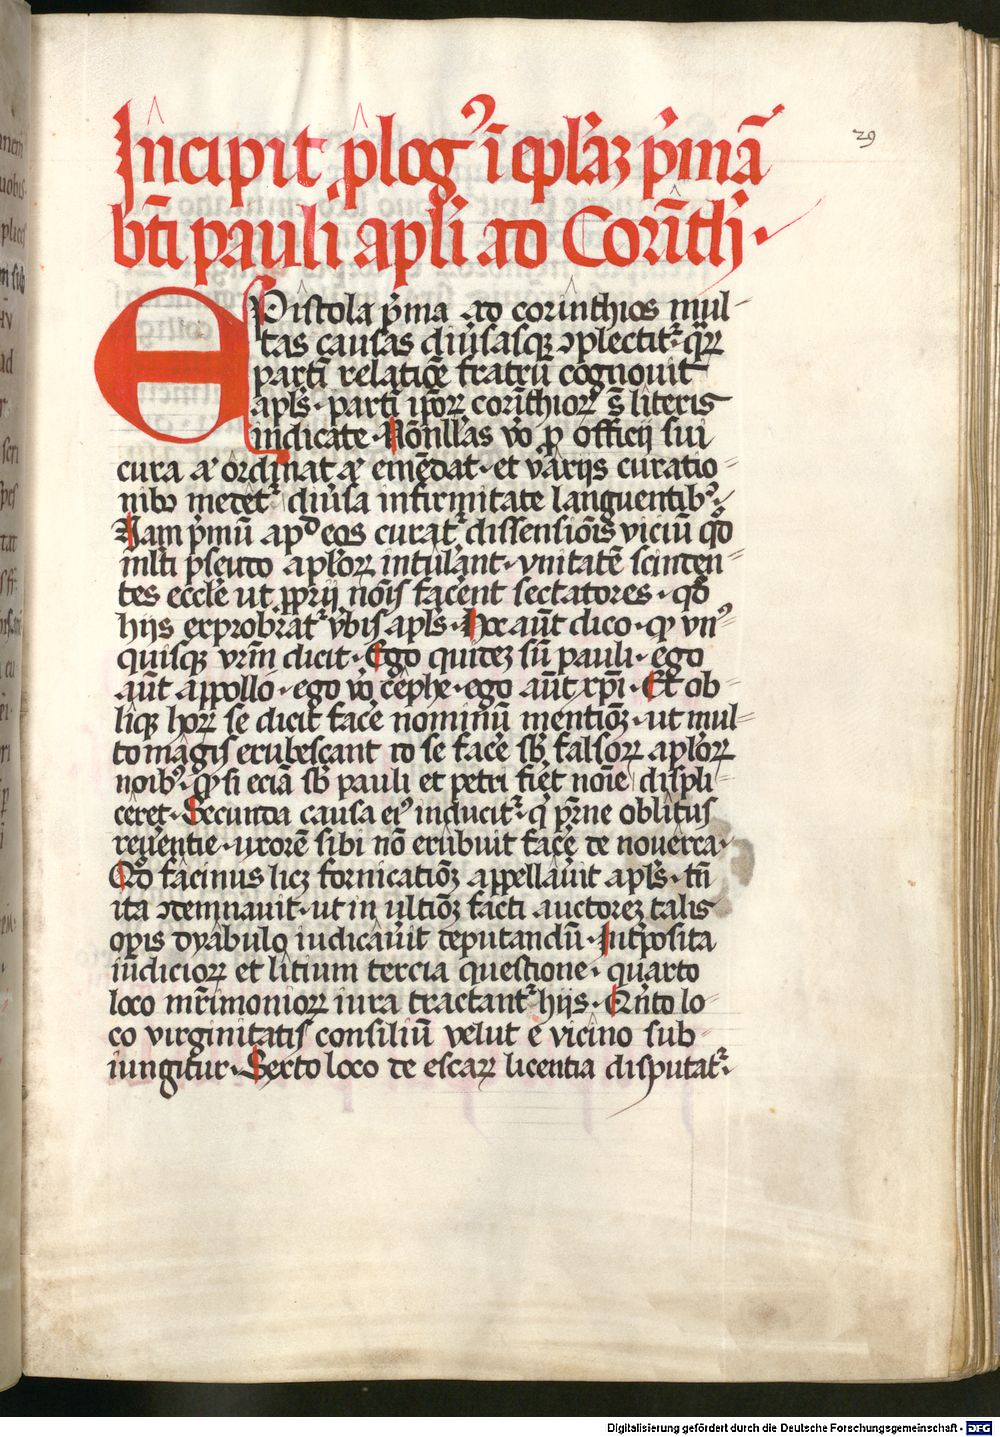 Incipit p̄log⁹ ī ep̄l̄aꝝ p̄mā
bt̄i pauli ap̄li ad Corīth̄·
29
EPistola p̄ma ad corinthios mul-
tas causas diūsasqꝫ ꝯplectit᷑· quaꝝ
partī relatiōe fratrū cognouit
apl̄s· partī ip̄oꝝ corīthioꝝ s̄ literis
indicate· Nōnull̄as vō ꝑ officij sui
cura aɫ ordinat aɫ emēdat· et varijs curatio-
nibꝫ medet᷑ diūsa infirmitate languentib⁹·
Nam p̄mū apd̄ eos curat᷑ dissensiōis viciū qd̄
ml̄ti pseudo apl̄oꝝ intulant· vnitatē scinden-
tes eccl̄e ut ꝓprij nōis facent sectatores· qd̄
hijs exprobrat᷑ v̄bis apl̄s· Hoc aūt dico· qꝫ vn⁹
quisqꝫ vrm̄ dicit· Ego quideꝫ sū pauli· ego
aūt appollo· ego vō cephe· ego aūt xp̄i· Et ob-
liqꝫ hoꝝ se dicit face nominū mentiōꝫ· ut mul-
to magis erubescant id se face sb̄ falsoꝝ apl̄oꝝ
noībꝫ· qꝫ si eciā sb̄ pauli et petri fiet noīe displi-
ceret· Secunda causa ei⁹ inducit᷑· q̄ p̄rne oblitus
reuentie· uxorē sibi nō erubuit face de nouerca·
Qd̄ facinus licꝫ fornicatiōꝫ appellauit apl̄s· tn̄
ita ꝯdemnauit· ut in ultiōꝫ facti auctoreꝫ talis
opis dyabulo iudicauit deputandū· Intposita
iudicioꝝ et litium tercia questione· quarto
loco mr̄imonioꝝ iura tractant᷑ hijs· Qn̄to lo-
co virginitatis consiliū velut e vicino sub-
iungitur· Sexto loco de escaꝝ licentia disputat᷑·
Digitalisierung gefördert durch die Deutsche Forschungsgemeinschaft - DFG